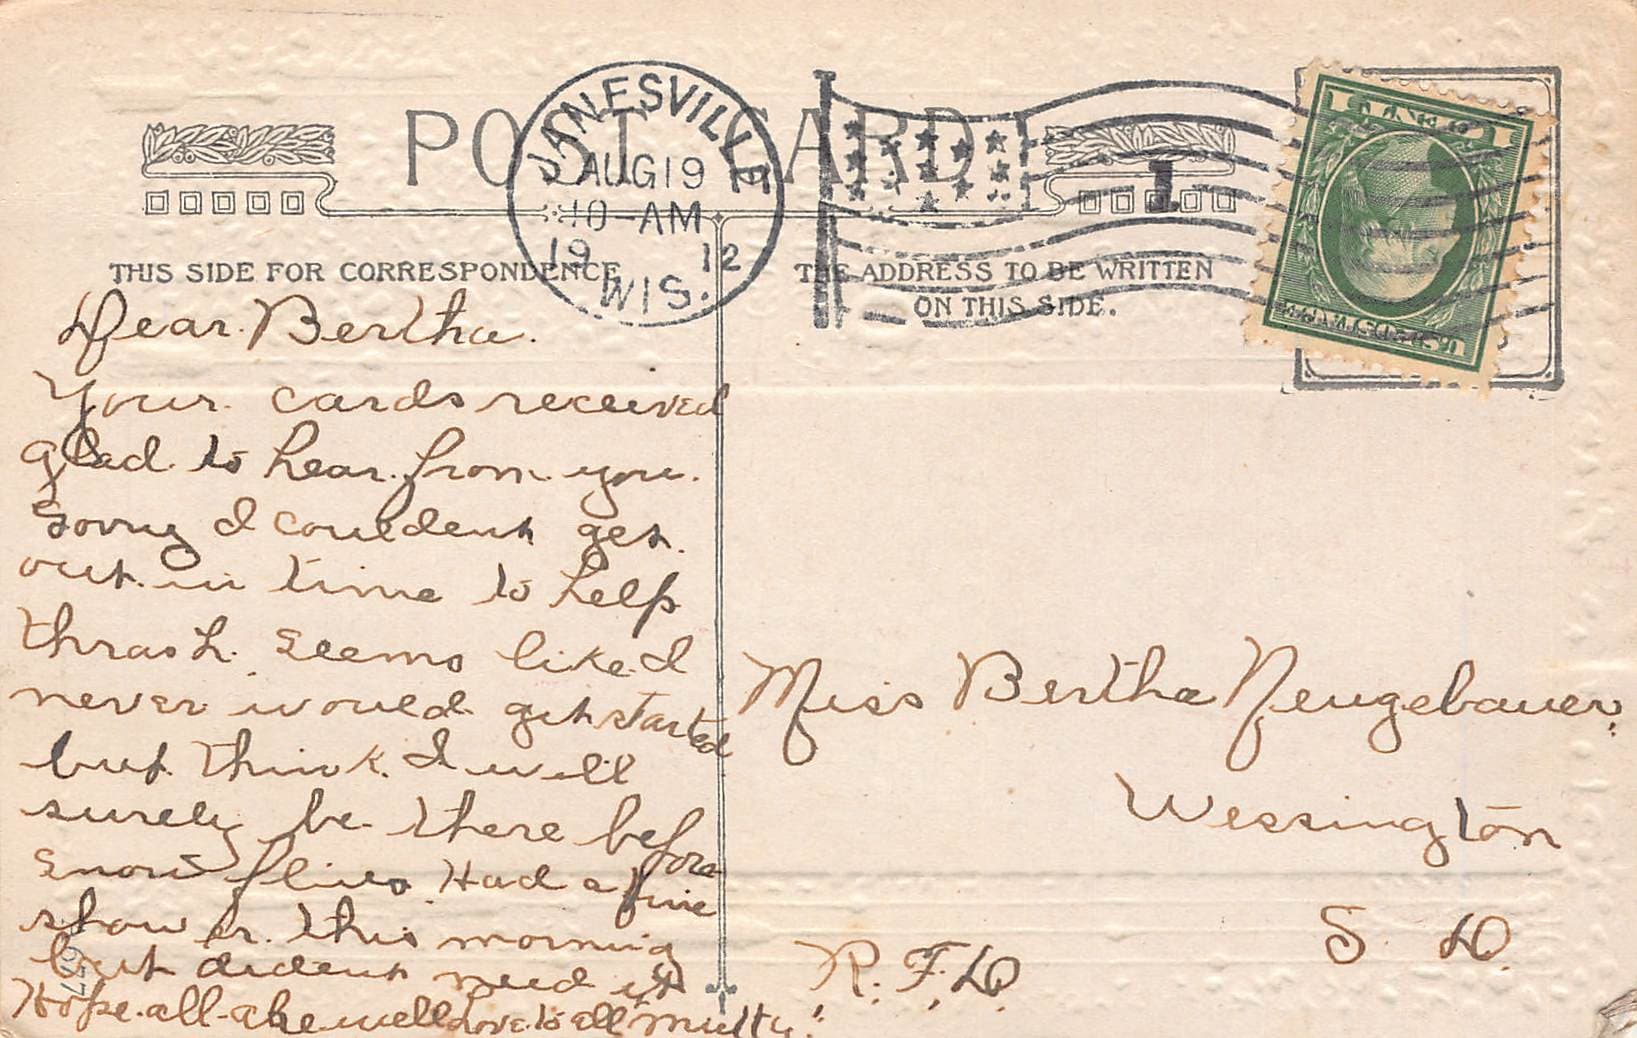 POST CARD
JANESVILLE
AUG 19
10-AM
1912
WIS.
1
THIS SIDE FOR CORRESPONDENCE
THE ADDRESS TO BE WRITTEN
ON THIS SIDE.
Dear Bertha.
Your cards received
glad to hear from you.
Sorry I couldent get
out in time to help
thrash. Seems like I
never would get started
but think I will
surely be there before
snow flies Had a fine
shower this morning
but dident need it
Hope all are well Love to all Mutty.
Miss Bertha Neugebauer,
Wessington
S. D.
R. F. D